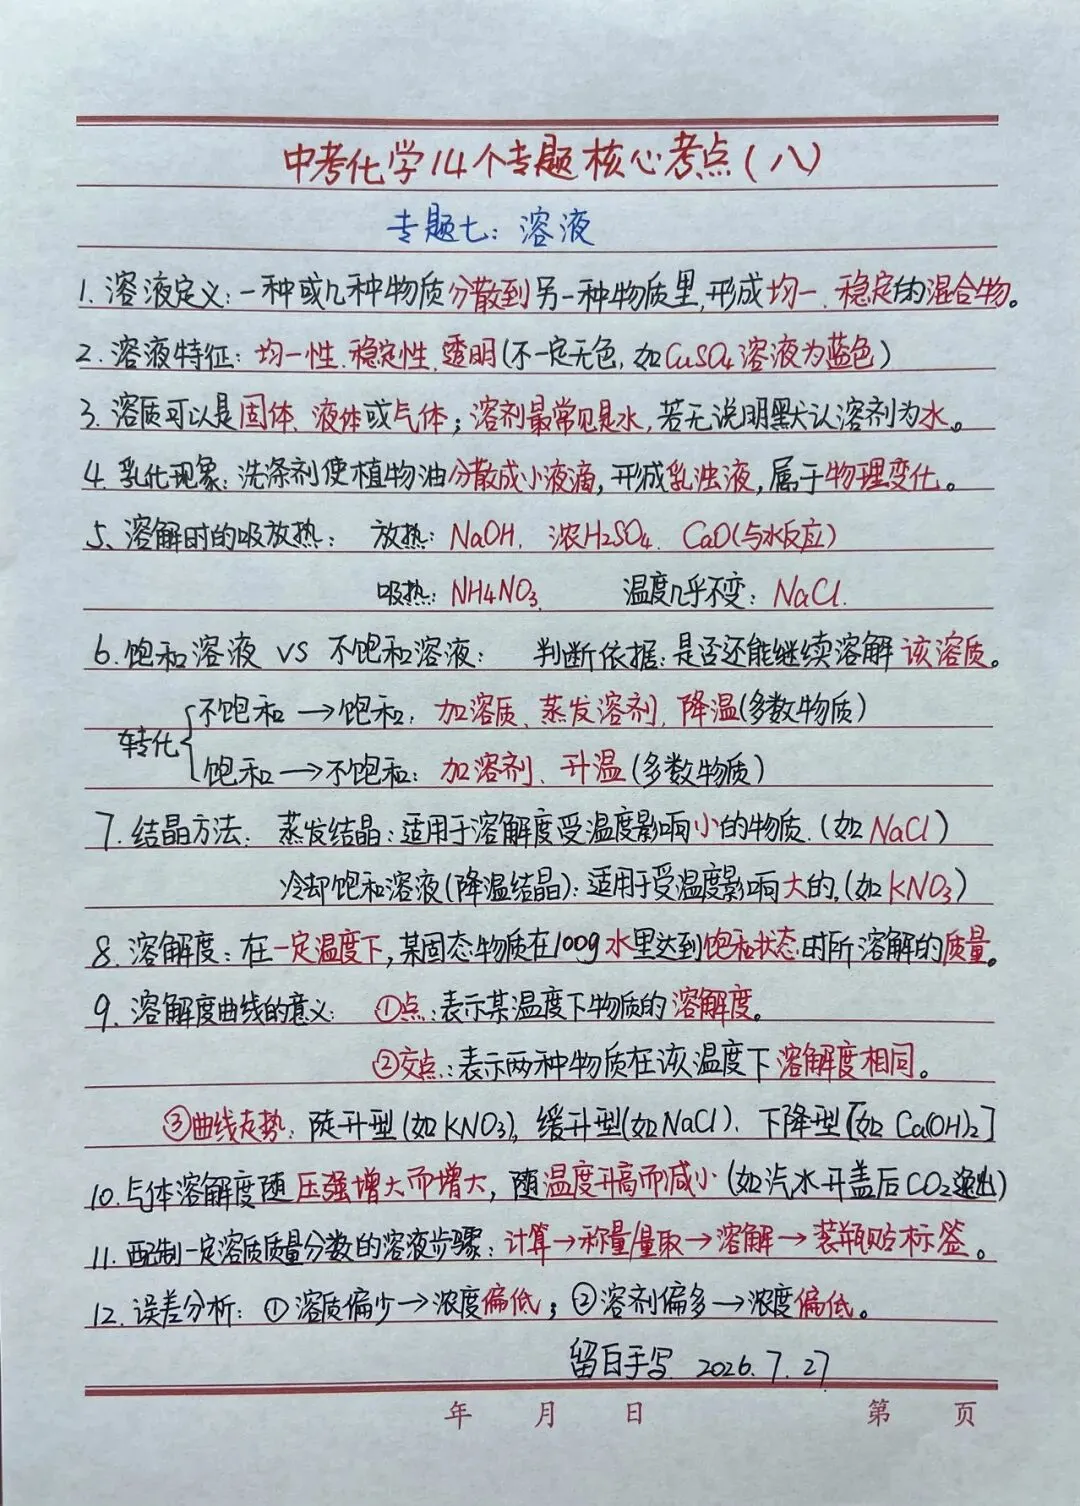 中考化学14个专题核心考点(八)
专题七:溶液
1.溶液定义:一种或几种物质分散到另一种物质里,形成均一、稳定的混合物。
2.溶液特征:均一性、稳定性、透明(不一定无色,如CuSO4溶液为蓝色)
3.溶质可以是固体、液体或气体;溶剂最常见是水,若无说明默认溶剂为水。
4.乳化现象:洗涤剂使植物油分散成小液滴,形成乳浊液,属于物理变化。
5、溶解时的吸放热: 放热:NaOH、浓H2SO4、CaO(与水反应)
吸热:NH4NO3、 温度几乎不变:NaCl.
6.饱和溶液 VS 不饱和溶液: 判断依据:是否还能继续溶解该溶质。
转化 不饱和→饱和:加溶质、蒸发溶剂、降温(多数物质)
饱和→不饱和:加溶剂、升温(多数物质)
7.结晶方法: 蒸发结晶:适用于溶解度受温度影响小的物质.(如NaCl)
冷却饱和溶液(降温结晶):适用于受温度影响大的,(如KNO3)
8.溶解度:在一定温度下,某固态物质在100g水里达到饱和状态时所溶解的质量。
9.溶解度曲线的意义: ①点:表示某温度下物质的溶解度。
②交点:表示两种物质在该温度下溶解度相同。
③曲线走势:陡升型(如KNO3),缓升型(如NaCl)、下降型[如Ca(OH)2]
10.气体溶解度随压强增大而增大,随温度升高而减小(如汽水开盖后CO2逸出)
11.配制一定溶质质量分数的溶液步骤:计算→称量/量取→溶解→装瓶贴标签。
12.误差分析:①溶质偏少→浓度偏低;②溶剂偏多→浓度偏低。
留白手写 2026.7.27
年 月 日 第 页